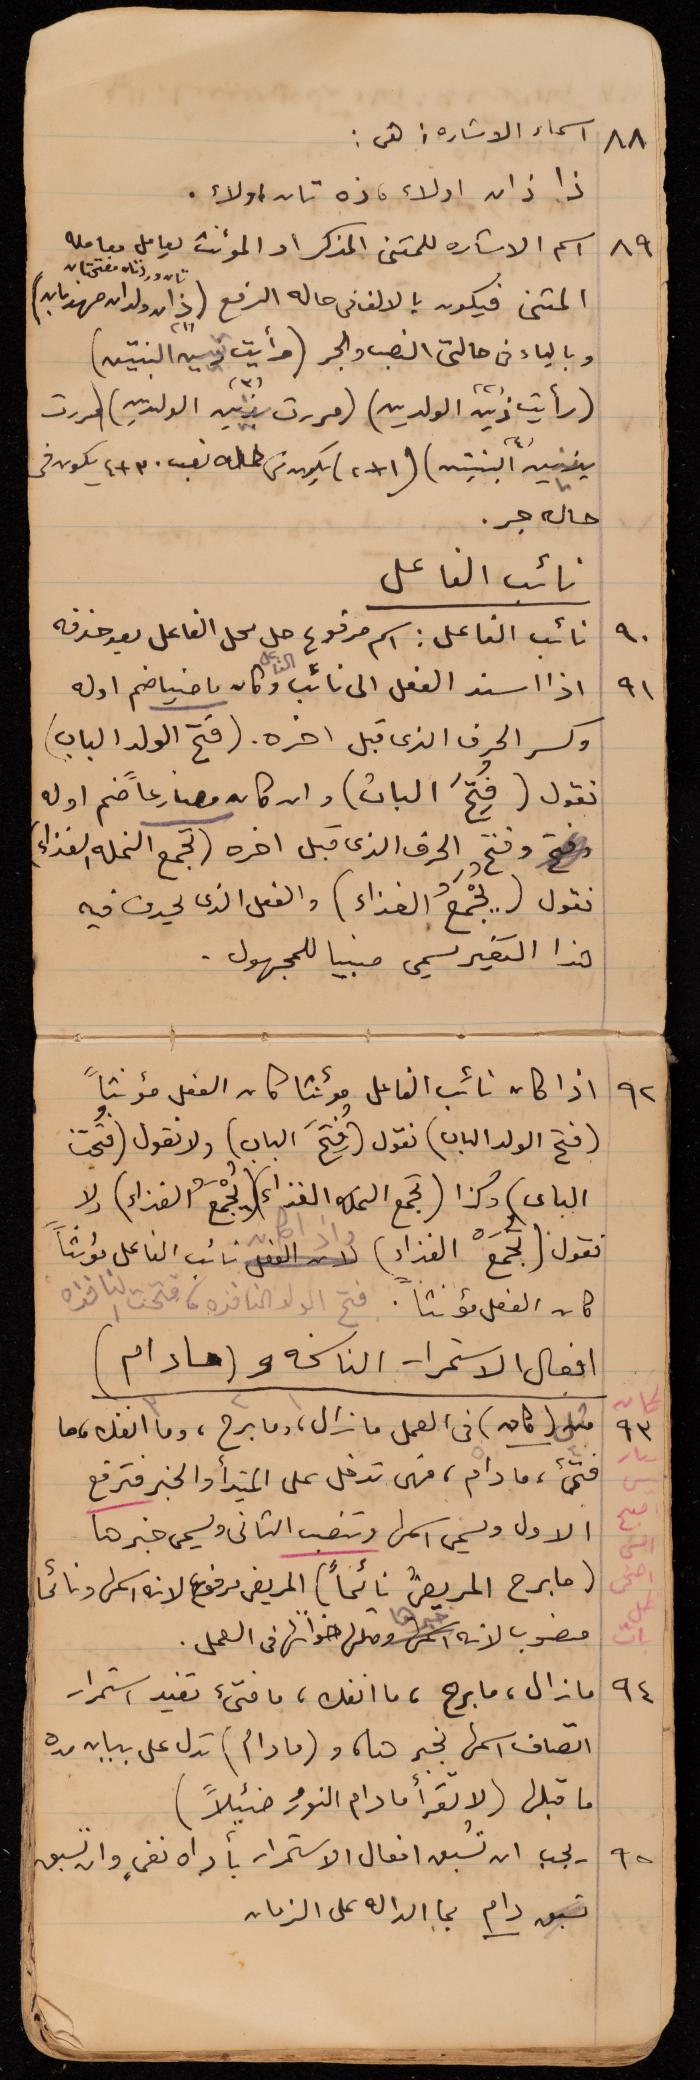 ٨٨ اسماء الاشاره: هى:
ذا ذان اولاء، ذه تان اولاء.
٨٩ اسم الاشاره للمثنى المذكر او المؤنث يعامل معامله
المثنى فيكون بالالف فى حاله الرفع (ذان ولدان مهذبان)
وبالياء فى حالتى النصب والجر (رأيت تين البنتين)
(رأيت ذين الولدين) (مررت بذين الولدين) (مررت
البنتين) (١+٢) يكون فى حاله نصب. ٣+٤ يكون فى
حاله جر.
نائب الفاعل
٩٠ نائب الفاعل: اسم مرفوع حل محل الفاعل بعد حذفه
٩١ اذا اسند الفعل الى نائب الفاعل وكان ماضيا ضم اوله
وكسر الحرف الذى قبل اخره. (فتح الولد الباب)
نقول (فُتِحَ الباب) وان كان مضارعاً ضم اوله
وفتح الحرف الذى قبل اخره (تجمع النمله الغذاء)
نقول (.. يُجْمَعُ الغذاء) والفعل الذى يحدث فيه
هذا التغير يسمى مبنيا للمجهول.
٩٢ اذا كان نائب الفاعل مؤنثا كان الفعل مؤنثاً
(فتح الولد الباب) نقول (فُتِحَ الباب) ولا نقول (فُتحت
الباب) وكذا (تجمع النمله الغذاء) (يُجْمَعُ الغذاء) ولا
نقول (تُجْمَعُ الغذاء) واذا كان نائب الفاعل مؤنثاً
كان الفعل مؤنثاً. فتح الولد النافذه، فتحت النافذه
افعال الاستمرار الناسخه و (مادام)
٩٣ مثل (كان) فى العمل مازال، وما برح، وما انفك، ما
فتئ، مادام، فهى تدخل على المبتدأ والخبر فترفع
الاول ويسمى اسمها وتنصب الثانى ويسمى خبرها
(ما برح المريضُ نائماً) المريض مرفوع لانه اسمها ونائما
منصوب لانه خبرها ومثلها اخواتها فى العمل.
٩٤ مازال، مابرح، ما انفك، ما فتئ تفيد استمرار
اتصاف اسمها بخبرها، و (مادام) تدل على بيان مده
ما قبلها (لا تقرأ مادام النورُ ضئيلاً)
٩٥ يجب ان تُسبق افعال الاستمرار بأداه نفى وان تسبق
دام بما الداله على الزمان